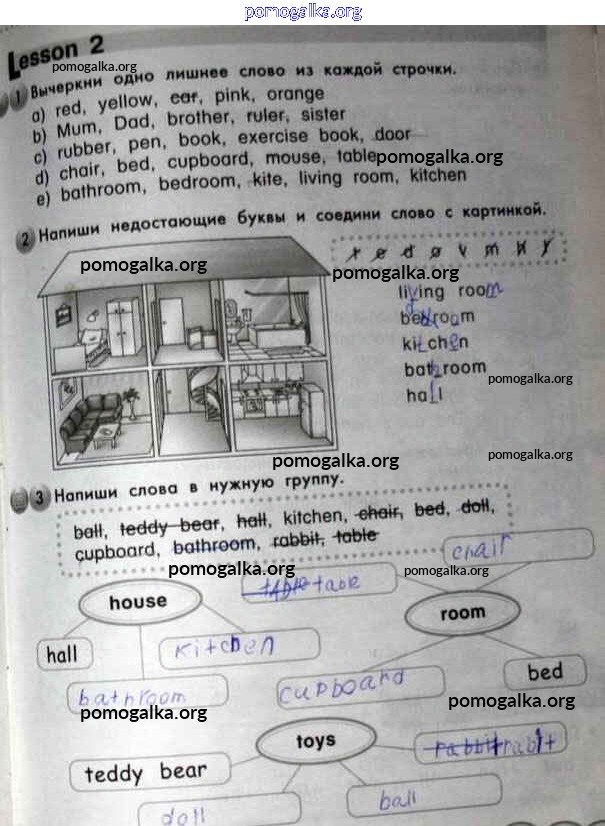 pomogalka.org
Lesson 2
pomogalka.org
1 Вычеркни одно лишнее слово из каждой строчки.
a) red, yellow, ear, pink, orange
b) Mum, Dad, brother, ruler, sister
c) rubber, pen, book, exercise book, door
d) chair, bed, cupboard, mouse, table
pomogalka.org
e) bathroom, bedroom, kite, living room, kitchen
2 Напиши недостающие буквы и соедини слово с картинкой.
pomogalka.org
pomogalka.org
living room
bedroom
kitchen
bathroom
pomogalka.org
hall
pomogalka.org
pomogalka.org
3 Напиши слова в нужную группу.
ball, teddy bear, hall, kitchen, chair, bed, doll,
cupboard, bathroom, rabbit, table
chair
pomogalka.org
pomogalka.org
table table
house
room
hall
kitchen
bathroom
cupboard
bed
pomogalka.org
pomogalka.org
toys
rabbit rabit
teddy bear
doll
ball